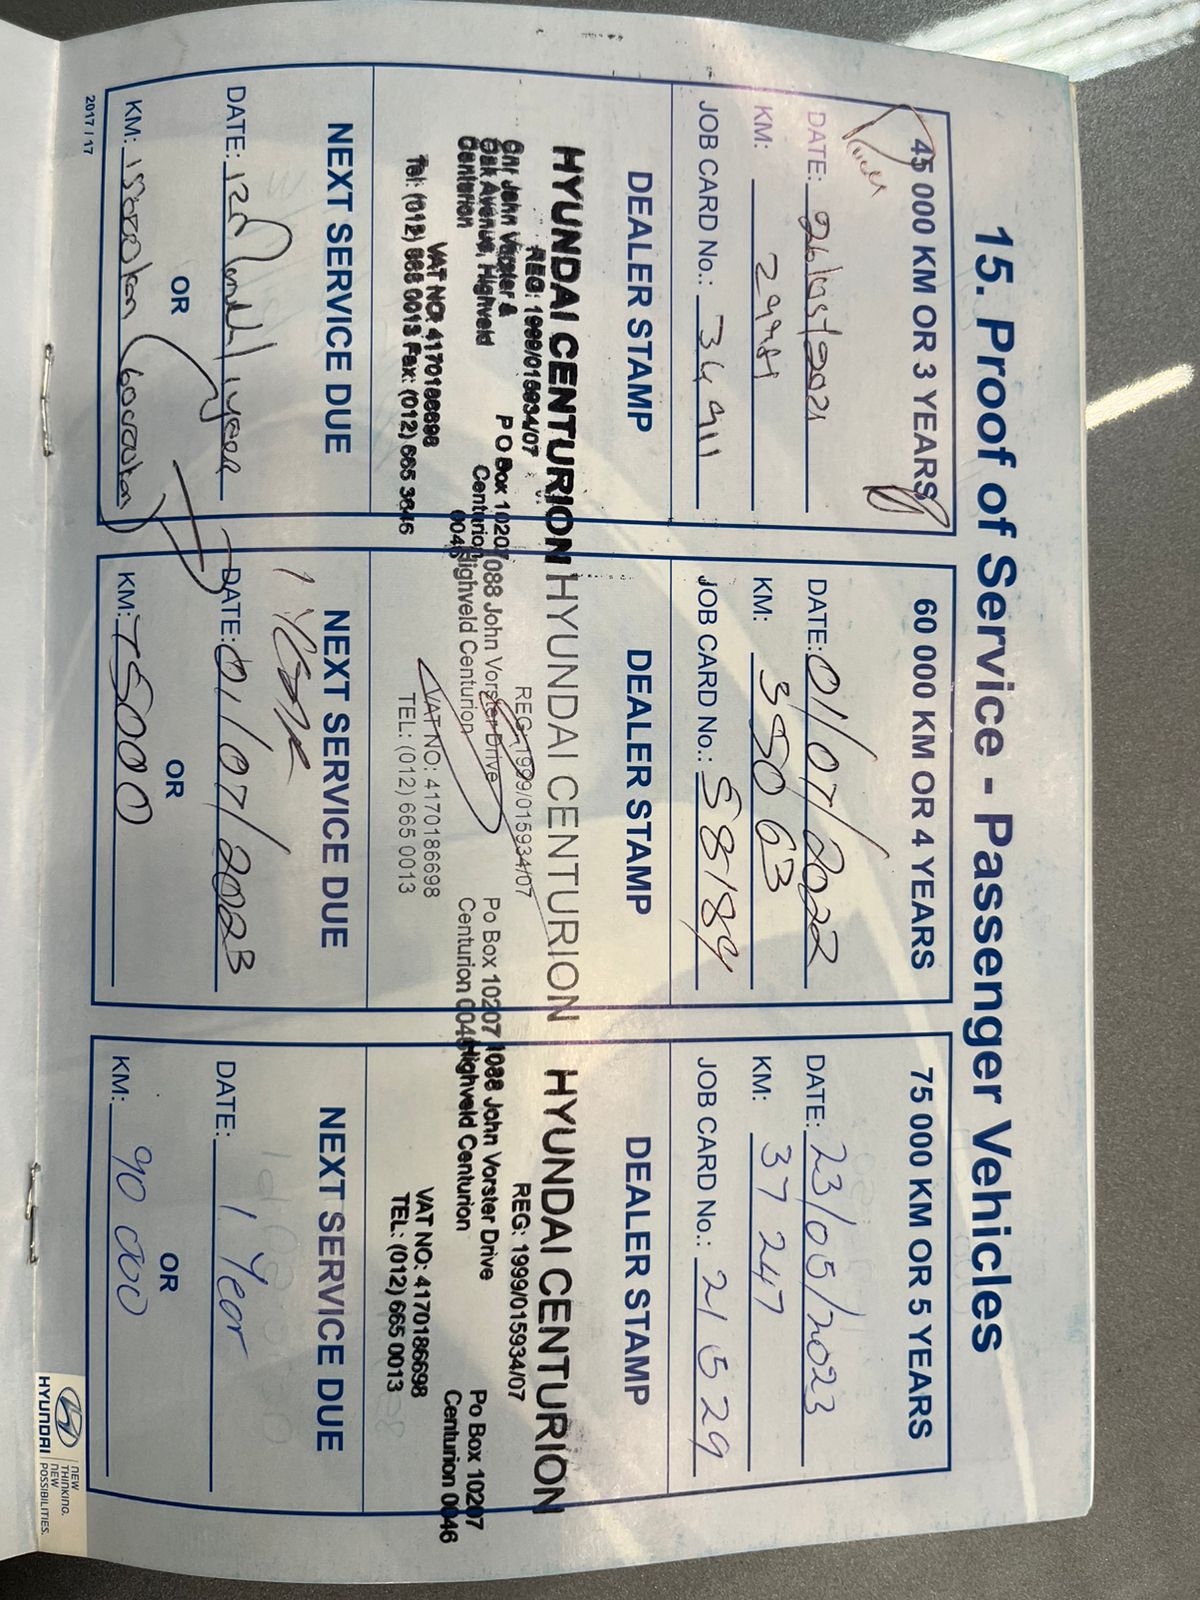 15. Proof of Service - Passenger Vehicles
45 000 KM OR 3 YEARS
DATE: 26/05/2021
KM: 29981
JOB CARD No.: 34911
DEALER STAMP
HYUNDAI CENTURION
REG: 1999/015934/07
Cnr John Vorster &
Oak Avenue, Highveld
Centurion
P O Box 10207
Centurion
0046
VAT NO: 4170186698
Tel: (012) 665 0013 Fax: (012) 665 3646
NEXT SERVICE DUE
DATE: 12 1 year
OR
KM: 15000km (60000km)
2017 / 17
60 000 KM OR 4 YEARS
DATE: 01/07/2022
KM: 35063
JOB CARD No.: 58184
DEALER STAMP
HYUNDAI CENTURION
REG: 1999/015934/07
1088 John Vorster Drive
Highveld Centurion
Po Box 10207
Centurion 0046
VAT NO: 4170186698
TEL: (012) 665 0013
NEXT SERVICE DUE
1 YEAR
DATE: 01/07/2023
OR
KM: 75000
75 000 KM OR 5 YEARS
DATE: 23/05/2023
KM: 37 247
JOB CARD No.: 21529
DEALER STAMP
HYUNDAI CENTURION
REG: 1999/015934/07
1088 John Vorster Drive
Highveld Centurion
Po Box 10207
Centurion 0046
VAT NO: 4170186698
TEL: (012) 665 0013
NEXT SERVICE DUE
DATE: 1 Year
OR
KM: 90 000
HYUNDAI
NEW
THINKING.
NEW
POSSIBILITIES.